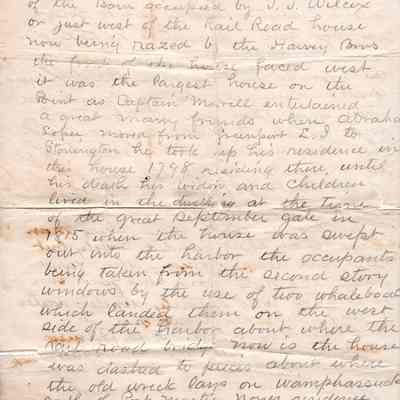 of the Barn occupied by J. J. Wilcox
or just west of the Rail Road house
now being razed by the Harvey Bros
the front of the house faced west
it was the largest house on the
Point as Captain Morell entertained
a great many friends when Abraha
Loper moved from Greenport L. I to
Stonington he took up his residence in
this house 1798 residing there until
his death his widow and children
lived in the dwelling at the time
of the great September gale in
1815 when the house was swept
out into the harbor the occupants
being taken from the second story
windows by the use of two whaleboat
which landed them on the west
side of the harbor about where the
Rail Road bridge now is the house
was dashed to pieces about where
the old wreck lays on Wamphassuck